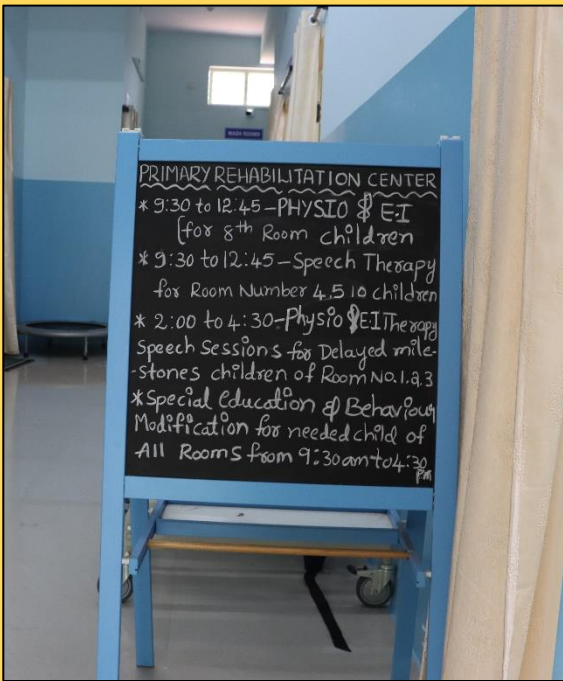 WASH ROOMS
PRIMARY REHABILITATION CENTER
* 9:30 to 12:45 - PHYSIO & E.I
[for 8th Room children
* 9:30 to 12:45 - Speech Therapy
for Room Number 4,5 10 children
* 2:00 to 4:30 - Physio & E.I Therapy
Speech Sessions for Delayed mile-
-stones children of Room NO.1,2,3
* Special Education & Behaviour
Modification for needed child of
All Rooms from 9:30am to 4:30
pm